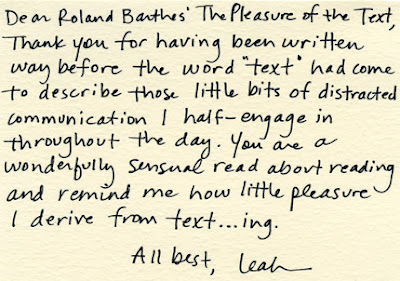 Dear Roland Barthes' The Pleasure of the Text,
Thank you for having been written
way before the word "text" had come
to describe those little bits of distracted
communication I half-engage in
throughout the day. You are a
wonderfully sensual read about reading
and remind me how little pleasure
I derive from text...ing.
All best, Leah